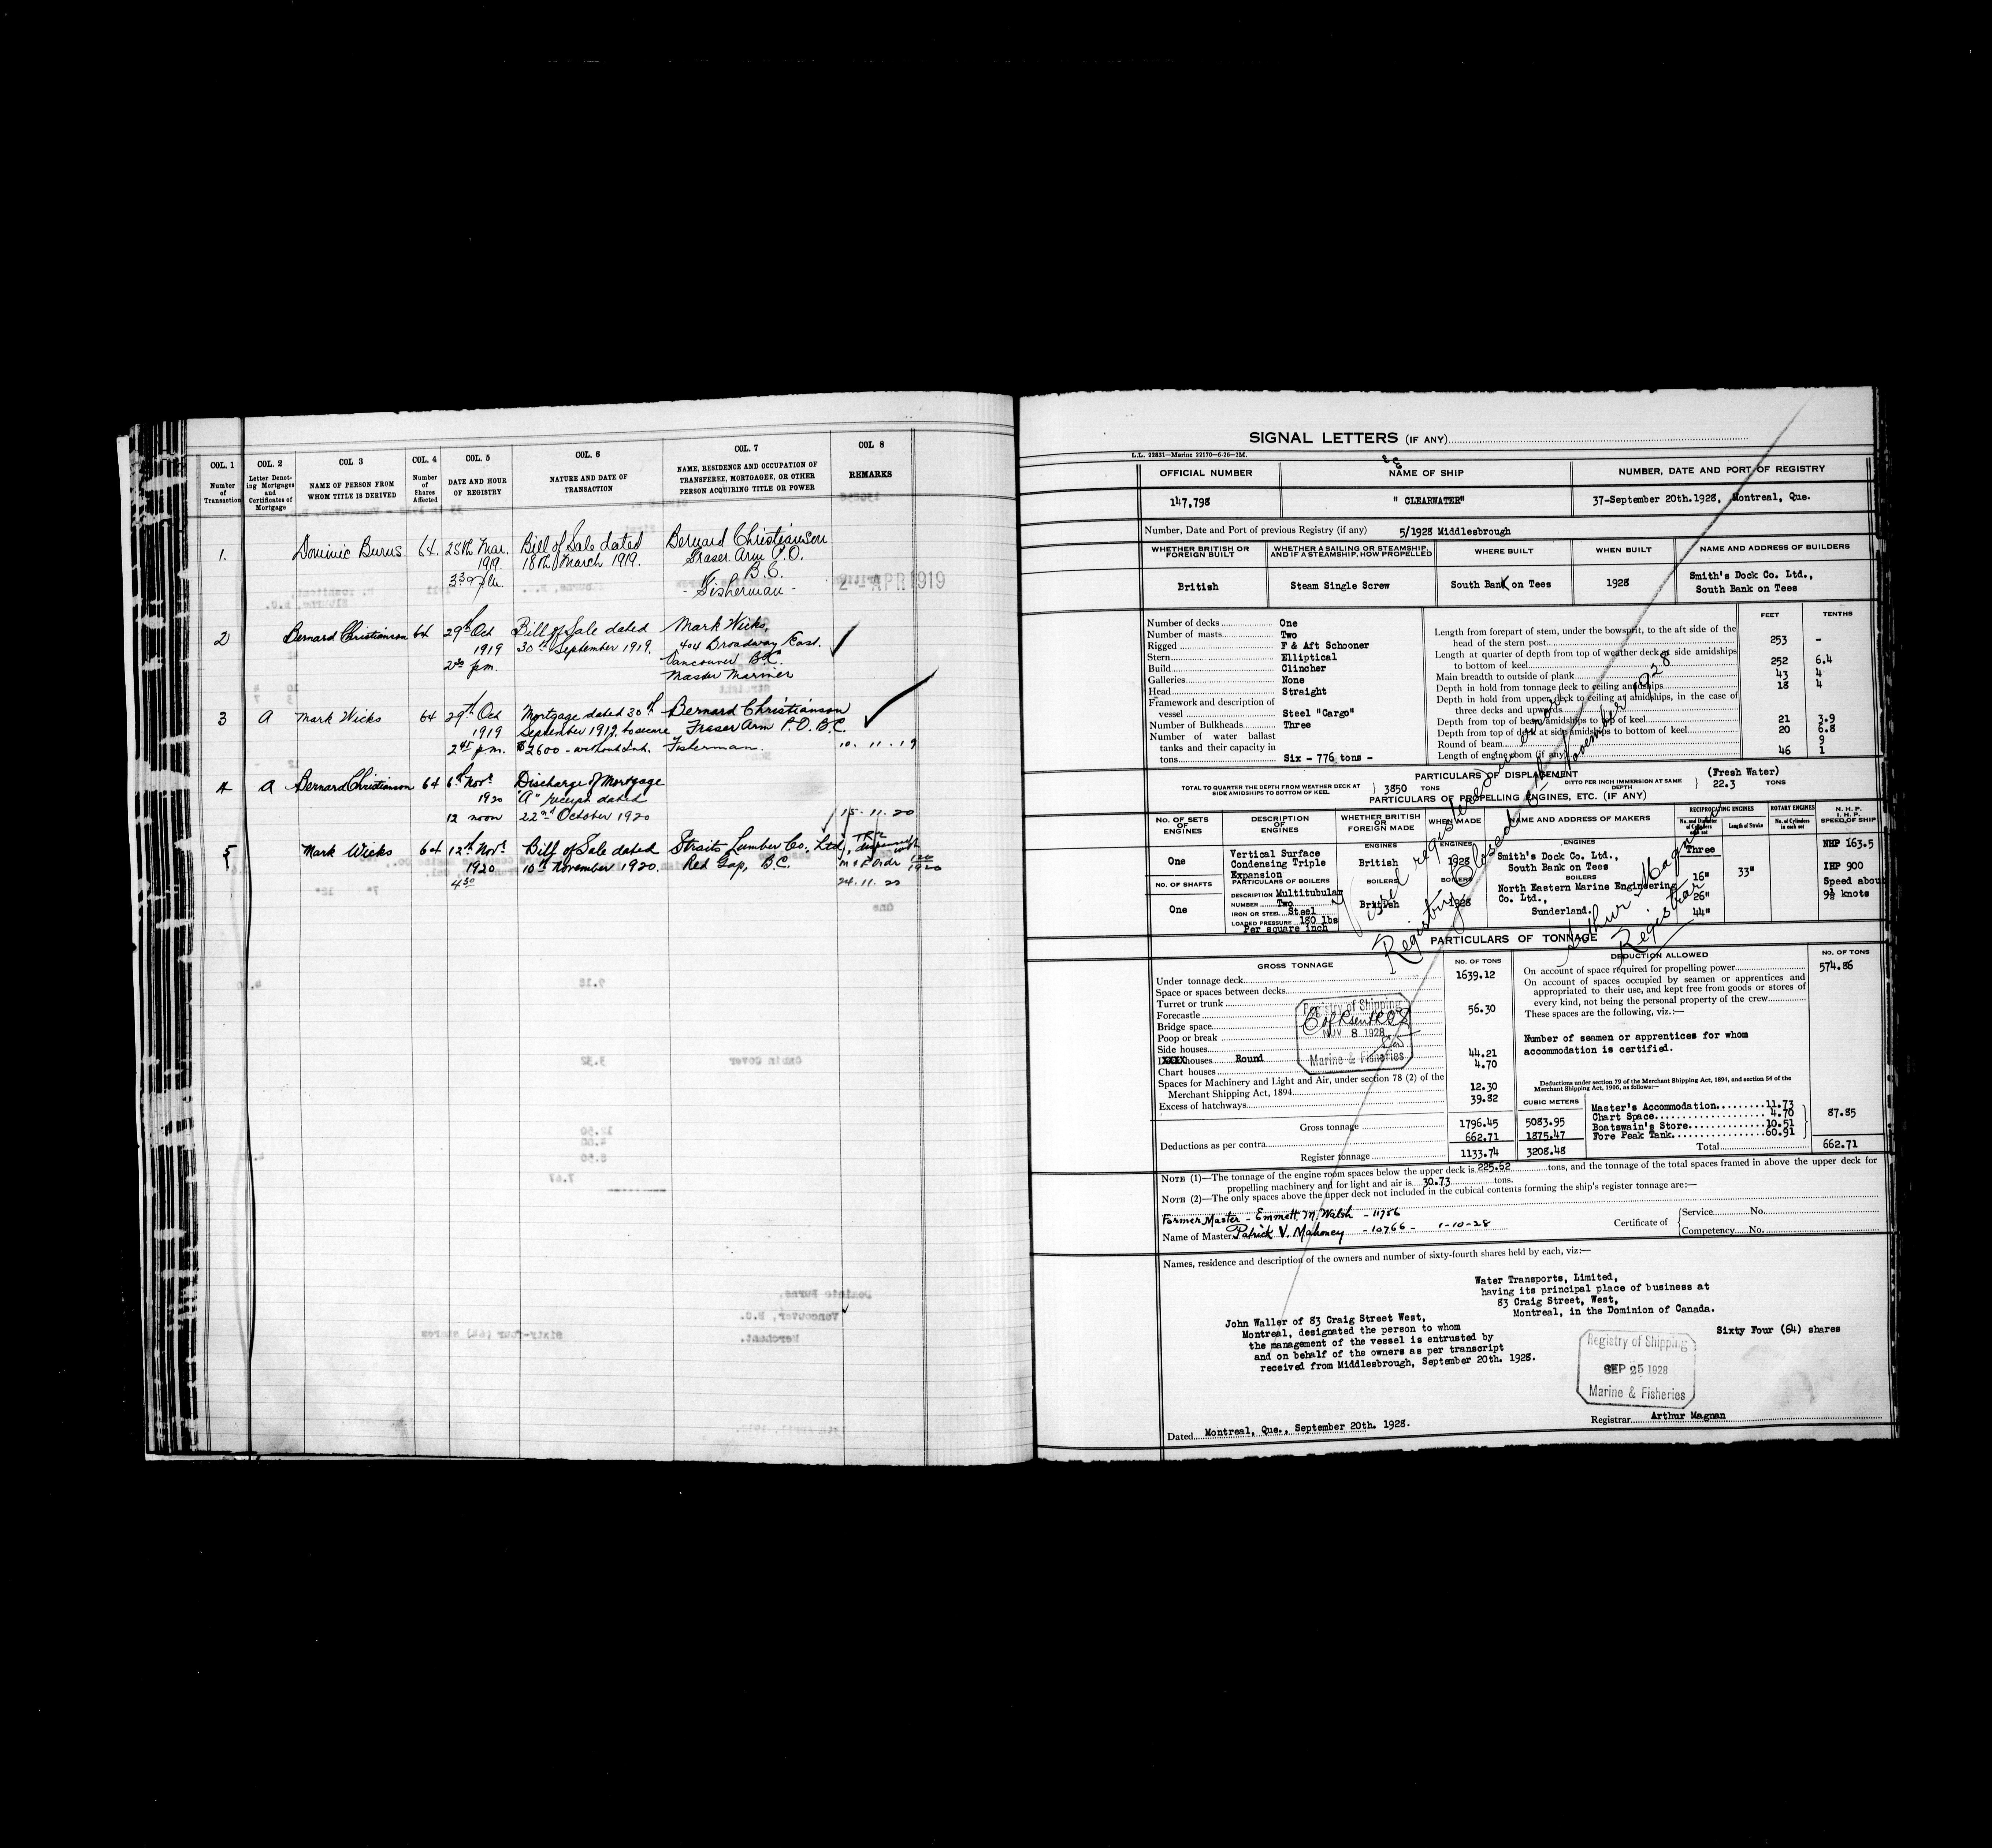 COL. 1
Number
of
Transaction
COL. 2
Letter Denot-
ing Mortgages
and
Certificates of
Mortgage
COL 3
NAME OF PERSON FROM
WHOM TITLE IS DERIVED
COL. 4
Number
of
Shares
Affected
COL. 5
DATE AND HOUR
OF REGISTRY
COL. 6
NATURE AND DATE OF
TRANSACTION
COL. 7
NAME, RESIDENCE AND OCCUPATION OF
TRANSFEREE, MORTGAGEE, OR OTHER
PERSON ACQUIRING TITLE OR POWER
COL 8
REMARKS
1.
Dominic Burns
64.
25th Mar.
1919.
3 30 p.m.
Bill of Sale dated
18th March 1919.
Bernard Christianson
Fraser Arm P.O.
B.C.
- Fisherman -
2 - APR 1919
2
Bernard Christianson
64
29th Oct
1919
2 30 pm.
Bill of Sale dated
30th September 1919.
Mark Wicks,
404 Broadway East.
Vancouver B.C.
Master Mariner
3
A
Mark Wicks
64
29th Oct
1919
2 45 pm.
Mortgage dated 30th
September 1919, to secure
$2600 - without Int.
Bernard Christianson
Fraser Arm P.O. B.C.
Fisherman.
10. 11. 19
4
A
Bernard Christianson
64
6th Novr
1920
12 noon
Discharge of Mortgage
"A" receipt dated
22nd October 1920
15. 11. 20
5
Mark Wicks
64
12th Novr
1920
4 30
Bill of Sale dated
10th November 1920.
Straits Lumber Co., Ltd,
Red Gap, B.C.
24. 11. 20
SIGNAL LETTERS (IF ANY)
L.L. 22831—Marine 22170—6-26—2M.
OFFICIAL NUMBER
NAME OF SHIP
NUMBER, DATE AND PORT OF REGISTRY
147,798
" CLEARWATER"
37-September 20th.1928, Montreal, Que.
Number, Date and Port of previous Registry (if any) 5/1928 Middlesbrough
WHETHER BRITISH OR
FOREIGN BUILT
WHETHER A SAILING OR STEAMSHIP,
AND IF A STEAMSHIP, HOW PROPELLED
WHERE BUILT
WHEN BUILT
NAME AND ADDRESS OF BUILDERS
British
Steam Single Screw
South Bank on Tees
1928
Smith's Dock Co. Ltd.,
South Bank on Tees
Number of decks One
Number of masts Two
Rigged F & Aft Schooner
Stern Elliptical
Build Clincher
Galleries None
Head Straight
Framework and description of
vessel Steel "Cargo"
Number of Bulkheads Three
Number of water ballast
tanks and their capacity in
tons Six - 776 tons -
FEET
TENTHS
Length from forepart of stem, under the bowsprit, to the aft side of the
head of the stern post 253 -
Length at quarter of depth from top of weather deck at side amidships
to bottom of keel 252 6.4
Main breadth to outside of plank 43 4
Depth in hold from tonnage deck to ceiling amidships 18 4
Depth in hold from upper deck to ceiling at amidships, in the case of
three decks and upwards
Depth from top of beam amidships to top of keel 21 3.9
Depth from top of deck at side amidships to bottom of keel 20 6.8
Round of beam 9
Length of engine room (if any) 46 1
PARTICULARS OF DISPLACEMENT
TOTAL TO QUARTER THE DEPTH FROM WEATHER DECK AT
SIDE AMIDSHIPS TO BOTTOM OF KEEL 3850 TONS
DITTO PER INCH IMMERSION AT SAME
DEPTH (Fresh Water) 22.3 TONS
PARTICULARS OF PROPELLING ENGINES, ETC. (IF ANY)
No. OF SETS
OF
ENGINES
DESCRIPTION
OF
ENGINES
WHETHER BRITISH
OR
FOREIGN MADE
WHEN MADE
NAME AND ADDRESS OF MAKERS
RECIPROCATING ENGINES
No. and Diameter
of Cylinders
each set
Length of Stroke
ROTARY ENGINES
No. of Cylinders
in each set
N. H. P.
I. H. P.
SPEED OF SHIP
One
Vertical Surface
Condensing Triple
Expansion
ENGINES
British
ENGINES
1928
ENGINES
Smith's Dock Co. Ltd.,
South Bank on Tees
Three
16"
26"
44"
33"
NHP 163.5
IHP 900
Speed about
9½ knots
NO. OF SHAFTS
One
PARTICULARS OF BOILERS
DESCRIPTION Multitubular
NUMBER Two
IRON OR STEEL Steel
LOADED PRESSURE 180 lbs
Per square inch
BOILERS
British
BOILERS
1928
BOILERS
North Eastern Marine Engineering
Co. Ltd.,
Sunderland.
Vessel registered in error
Registry Closed 6th November 1928
Arthur Magnan
Registrar
PARTICULARS OF TONNAGE
GROSS TONNAGE
NO. OF TONS
Under tonnage deck 1639.12
Space or spaces between decks
Turret or trunk
Forecastle 56.30
Bridge space
Poop or break
Side houses
houses Round 44.21
Chart houses 4.70
Spaces for Machinery and Light and Air, under section 78 (2) of the
Merchant Shipping Act, 1894 12.30
Excess of hatchways 39.82
CUBIC METERS
Gross tonnage 1796.45 5083.95
Deductions as per contra 662.71 1875.47
Register tonnage 1133.74 3208.48
Registry of Shipping
NOV 8 1928
Marine & Fisheries
DEDUCTION ALLOWED
NO. OF TONS
On account of space required for propelling power 574.86
On account of spaces occupied by seamen or apprentices and
appropriated to their use, and kept free from goods or stores of
every kind, not being the personal property of the crew
These spaces are the following, viz.:—
Number of seamen or apprentices for whom
accommodation is certified.
Deductions under section 79 of the Merchant Shipping Act, 1894, and section 54 of the
Merchant Shipping Act, 1906, as follows:—
Master's Accommodation 11.73
Chart Space 4.70
Boatswain's Store 10.51
Fore Peak Tank 60.91
87.85
Total 662.71
NOTE (1)—The tonnage of the engine room spaces below the upper deck is 225.62 tons, and the tonnage of the total spaces framed in above the upper deck for
propelling machinery and for light and air is 30.73 tons.
NOTE (2)—The only spaces above the upper deck not included in the cubical contents forming the ship's register tonnage are:—
Former Master - Emmett M. Walsh - 11786
Name of Master Patrick V. Mahoney - 10766 - 1-10-28
Certificate of
Service No.
Competency No.
Names, residence and description of the owners and number of sixty-fourth shares held by each, viz:—
Water Transports, Limited,
having its principal place of business at
83 Craig Street, West,
Montreal, in the Dominion of Canada.
Sixty Four (64) shares
John Waller of 83 Craig Street West,
Montreal, designated the person to whom
the management of the vessel is entrusted by
and on behalf of the owners as per transcript
received from Middlesbrough, September 20th. 1928.
Registry of Shipping
SEP 25 1928
Marine & Fisheries
Dated Montreal, Que., September 20th. 1928.
Registrar Arthur Magnan